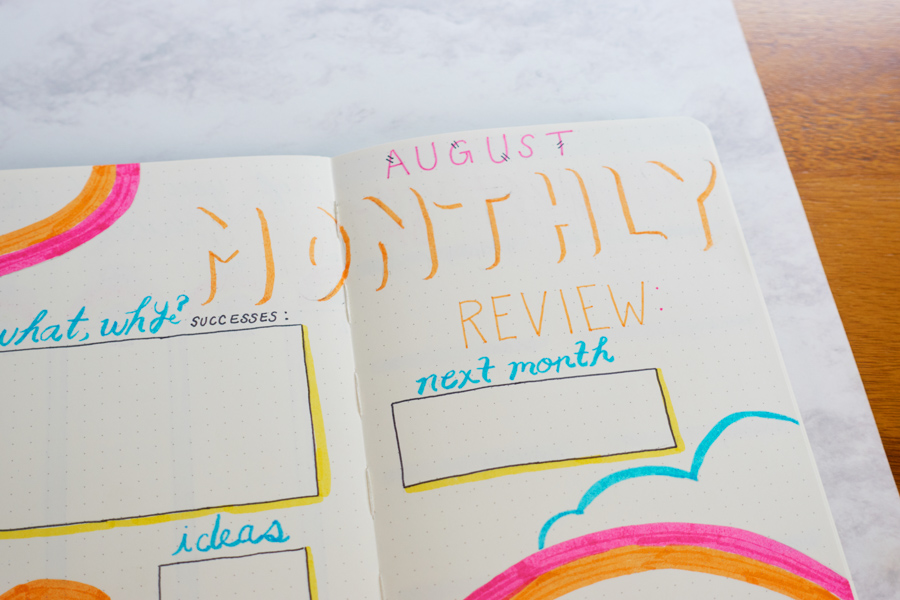 AUGUST
MONTHLY
REVIEW:
what, why?
SUCCESSES:
next month
ideas